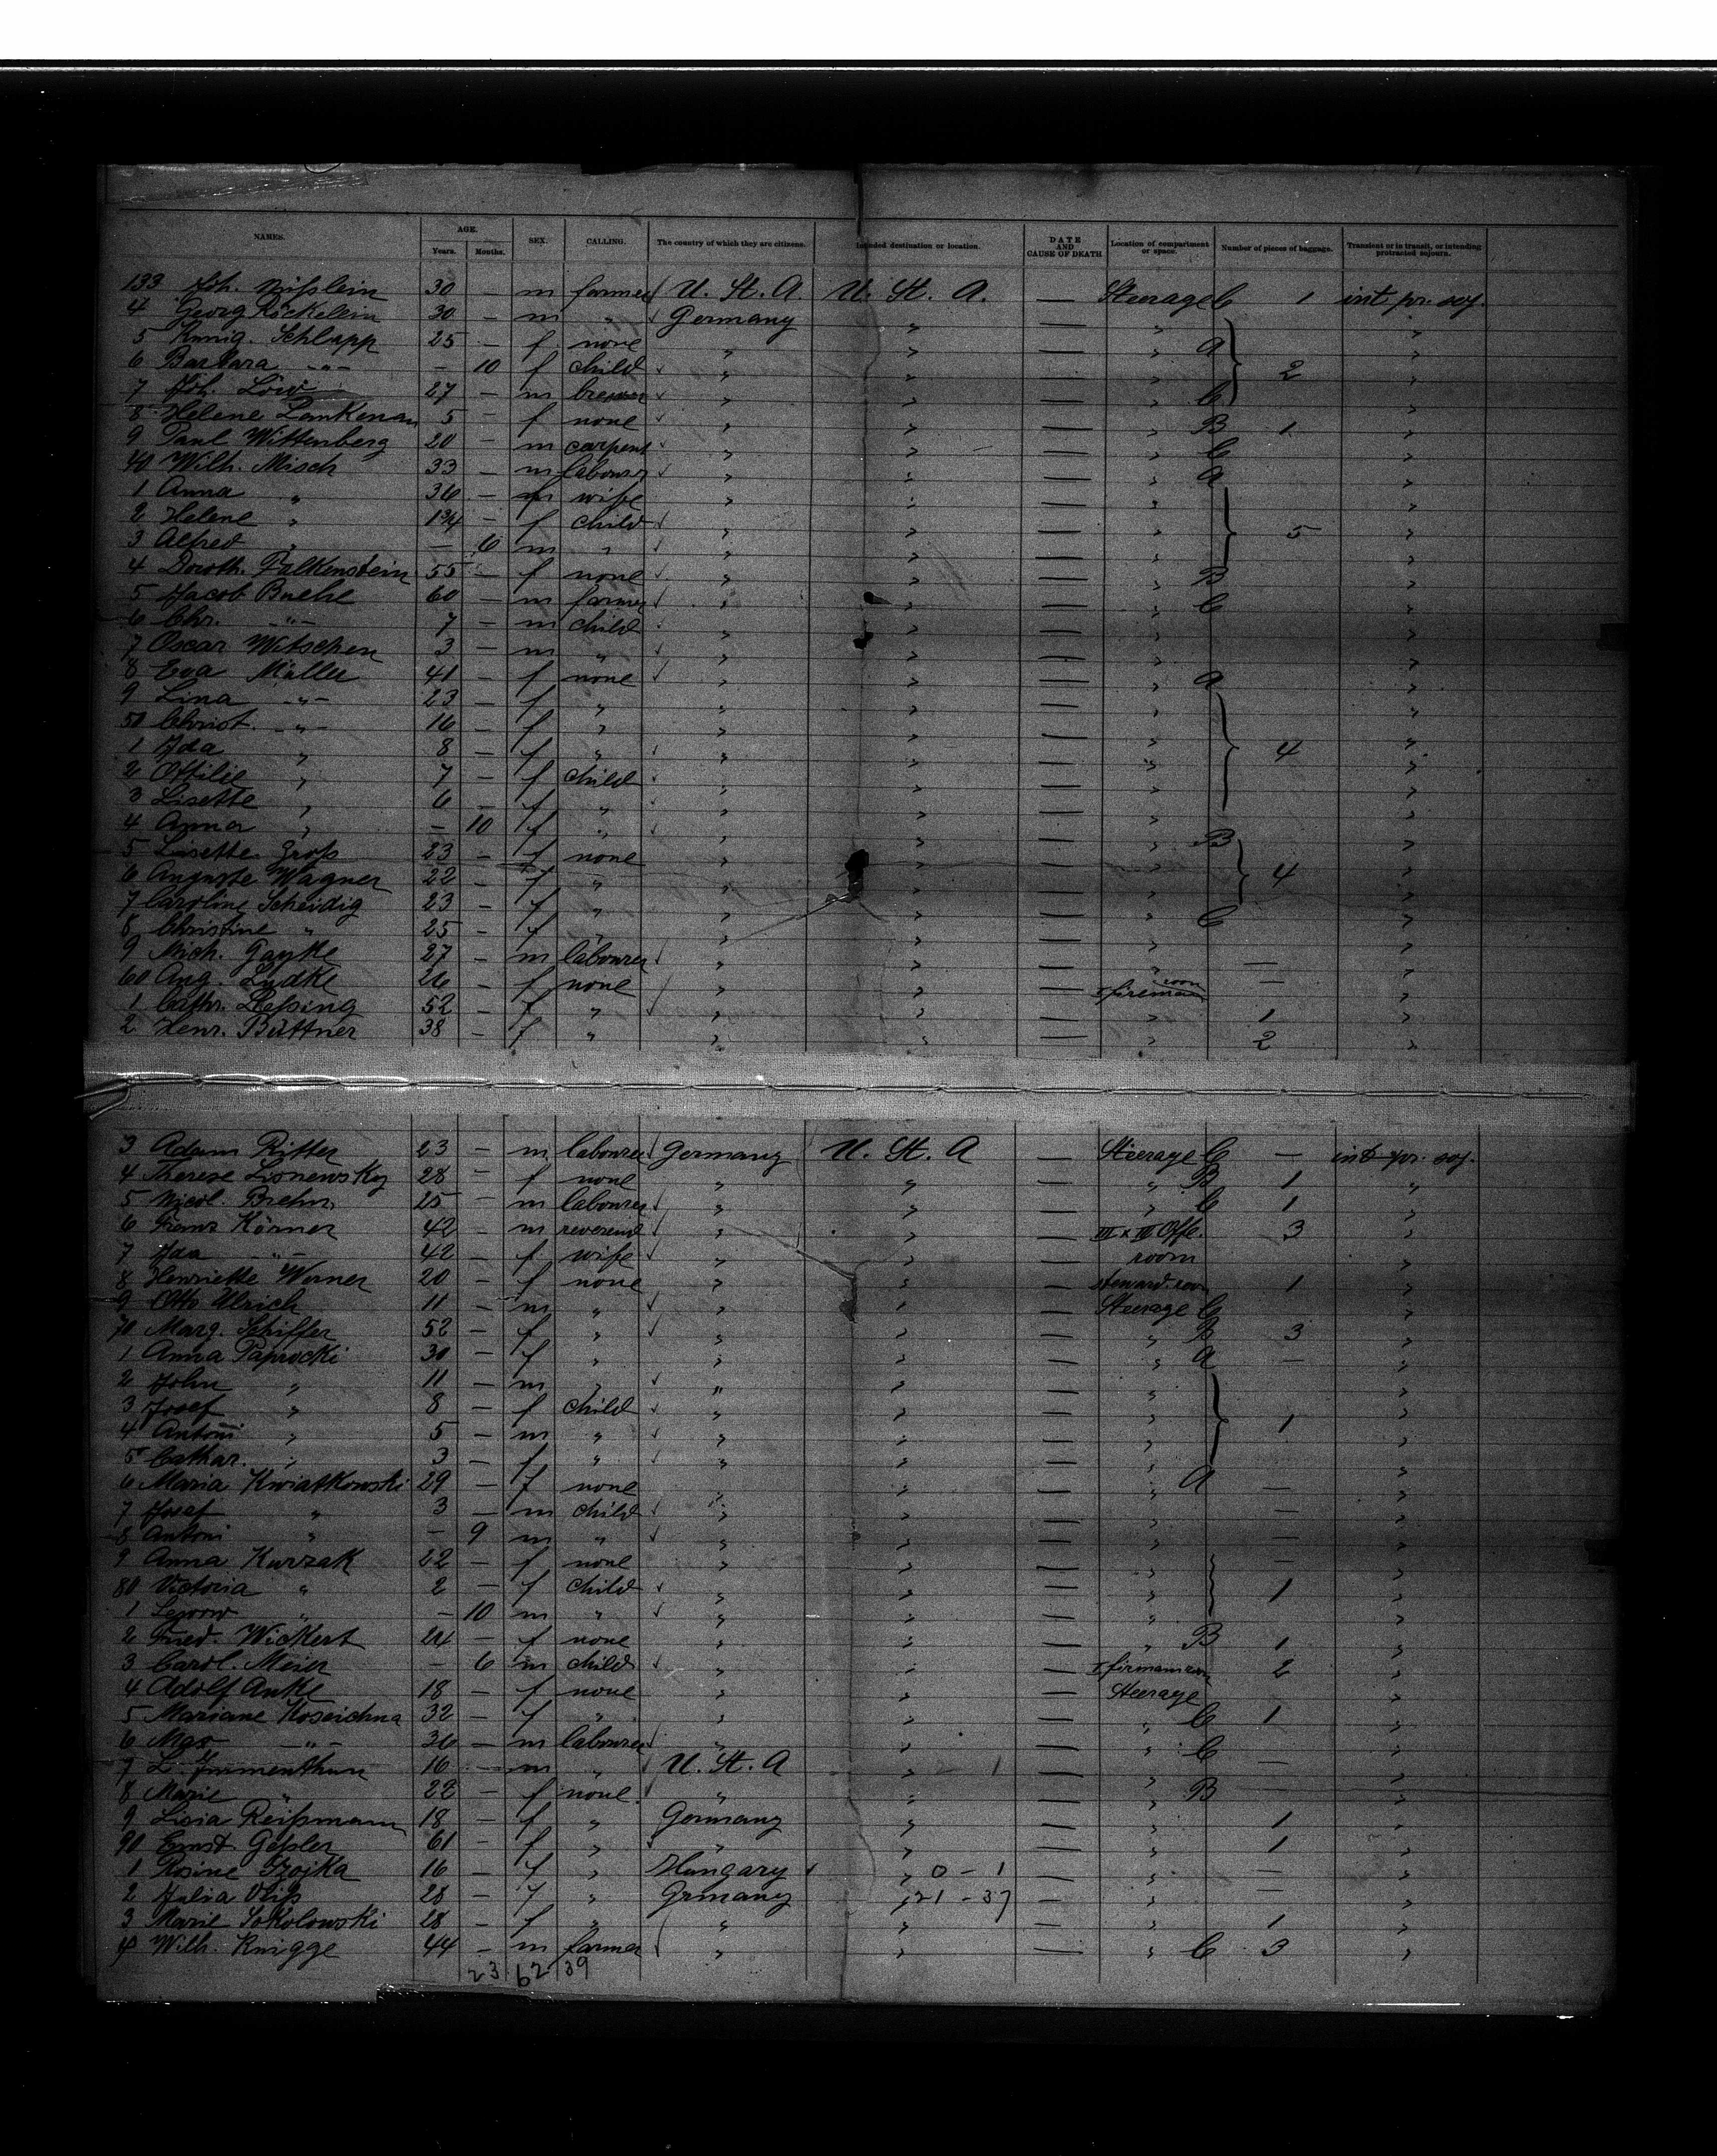 NAMES. AGE. Years. Months. SEX. CALLING. The country of which they are citizens. Intended destination or location. DATE AND CAUSE OF DEATH Location of compartment or space. Number of pieces of baggage. Transient or in transit, or intending protracted sojourn.
133 Joh. Nißlein 30 — m farmer U. St. A. U. St. A. — Steerage C 1 int. pr. soj.
4 Georg Rickelein 30 — m " Germany " — " "
5 Kunig. Schlapp 25 — f none " " — " a "
6 Barbara -"- — 10 f child " " — " 2 "
7 Joh. Löw 27 — m brewer " " — " C "
8 Helene Lankenau 5 — f none " " — " B 1 "
9 Paul Wittenberg 20 — m carpent " " — " C "
40 Wilh. Misch 33 — m labourer " " — " a "
1 Anna " 36 — f wife " " — " "
2 Helene " 1¾ — f child " " — " 5 "
3 Alfred " — 6 m " " " — " "
4 Doroth. Falkenstein 55 — f none " " — " B "
5 Jacob Buehe 60 — m farmer " " — " C "
6 Chr. -"- 7 — m child " " — " "
7 Oscar Witschen 3 — m " " " — " "
8 Eva Müller 41 — f none " " — " a "
9 Lina -"- 23 — f " " " — " "
50 Christ. -"- 16 — f " " " — " "
1 Ida " 8 — f " " " — " 4 "
2 Ottilie " 7 — f child " " — " "
3 Lisette " 6 — f " " " — " "
4 Anna " — 10 f " " " — " "
5 Lisette Groß 23 — f none " " — " B "
6 Auguste Wagner 22 — f " " " — " 4 "
7 Caroline Scheidig 23 — f " " " — " "
8 Christine " 25 — f " " " — " C "
9 Mich. Gayke 27 — m labourer " " — " — "
60 Aug. Lüdke 26 — f none " " — I fireman room — "
1 Cathr. Leßing 52 — f " " " — " 1 "
2 Henr. Büttner 38 — f " " " — " 2 "
3 Adam Ritter 23 — m labourer Germany U. St. A — Steerage C — int. pr. soj.
4 Therese Lisnewsky 28 — f none " " — " B 1 "
5 Nicol. Brehm 25 — m labourer " " — " C 1 "
6 Franz Körner 42 — m reverend " " — III x IV Offc. 3 "
7 Ida -"- 42 — f wife " " — room "
8 Henriette Werner 20 — f none " " — steward. room 1 "
9 Otto Ulrich 11 — m " " " — Steerage C "
70 Marg. Schiffer 52 — f " " " — " B 3 "
1 Anna Paprocki 30 — f " " " — " a — "
2 John " 11 — m " " " — " "
3 Josef " 8 — f child " " — " 1 "
4 Antoni " 5 — m " " " — " "
5 Cathar. " 3 — f " " " — " "
6 Maria Kwiatkowski 29 — f none " " — " a — "
7 Josef " 3 — m child " " — " — "
8 Antoni " — 9 m " " " — " — "
9 Anna Kurzak 22 — f none " " — " "
80 Victoria " 2 — f child " " — " 1 "
1 " — 10 m " " " — " "
2 Fried. Wickert 24 — f none " " — " B 1 "
3 Carol. Meier — 6 m child " " — I firmanroom 2 "
4 Adolf Anke 18 — f none " " — Steerage "
5 Mariane Koseichna 32 — f " " " — " C 1 "
6 Max -"- 36 — m labourer " " — " C "
7 L. 16 — m " U. St. A " — " — "
8 Marie " 22 — f none " " — " B "
9 Lisia Reißmann 18 — f " Germany " — " 1 "
90 Ernst Geßler 61 — f " " " — " 1 "
1 Rosine 16 — f " Hungary " 0 - 1 — " — "
2 Julia Veiß 28 — f " Grmany " 21 - 37 — " — "
3 Marie Sokolowski 28 — f " " " — " 1 "
4 Wilh. Knigge 44 — m farmer " " — " C 3 "
23 62 39